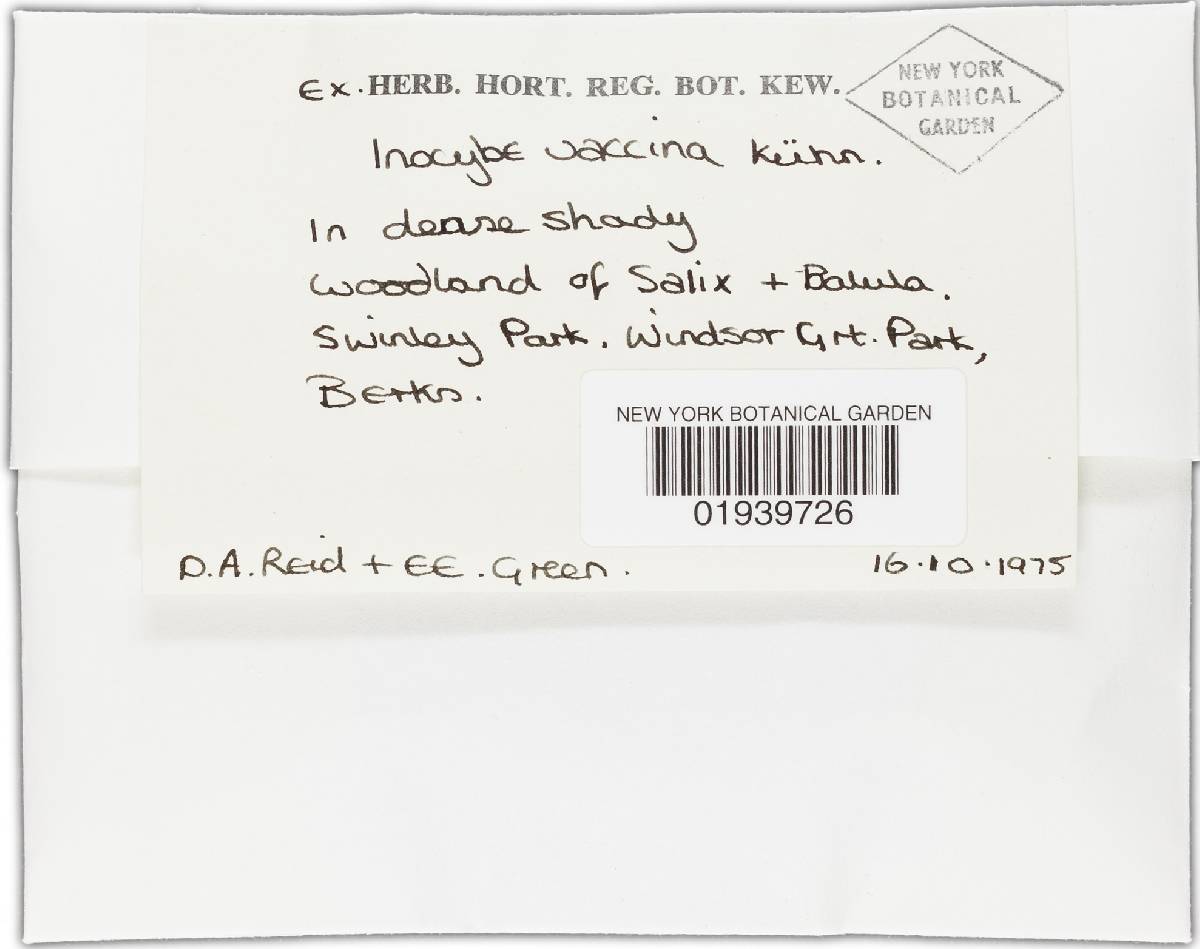 Ex. HERB. HORT. REG. BOT. KEW.
NEW YORK
BOTANICAL
GARDEN
Inocybe vaccina Kühn.
In dense shady
woodland of Salix + Betula.
Swinley Park. Windsor Grt. Park,
Berks.
NEW YORK BOTANICAL GARDEN
01939726
D.A. Reid + EE. Green. 16.10.1975